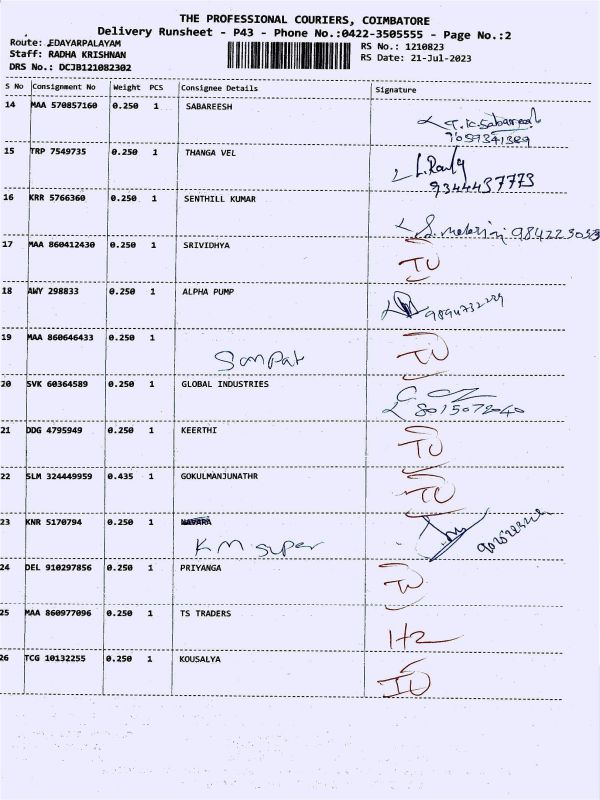 THE PROFESSIONAL COURIERS, COIMBATORE
Delivery Runsheet - P43 - Phone No.:0422-3505555 - Page No.:2
Route: EDAYARPALAYAM
Staff: RADHA KRISHNAN
DRS No.: DCJB121082302
RS No.: 1210823
RS Date: 21-Jul-2023
S No Consignment No Weight PCS Consignee Details Signature
14 MAA 570857160 0.250 1 SABAREESH
T.K.Sabareesh
7659341389
15 TRP 7549735 0.250 1 THANGA VEL
9344437773
16 KRR 5766360 0.250 1 SENTHILL KUMAR
17 MAA 860412430 0.250 1 SRIVIDHYA
18 AWY 298833 0.250 1 ALPHA PUMP
19 MAA 860646433 0.250 1
Sampat
20 SVK 60364589 0.250 1 GLOBAL INDUSTRIES
8015072040
21 DDG 4795949 0.250 1 KEERTHI
22 SLM 324449959 0.435 1 GOKULMANJUNATHR
23 KNR 5170794 0.250 1
KM super
24 DEL 910297856 0.250 1 PRIYANGA
25 MAA 860977096 0.250 1 TS TRADERS
26 TCG 10132255 0.250 1 KOUSALYA